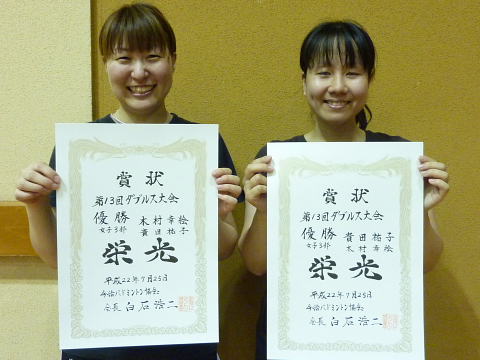 賞状
第13回ダブルス大会
優勝 木村幸絵
女子3部 貴田祐子
栄光
平成22年7月25日
今治バドミントン協会
会長 白石浩二
賞状
第13回ダブルス大会
優勝 貴田祐子
女子3部 木村幸絵
栄光
平成22年7月25日
今治バドミントン協会
会長 白石浩二